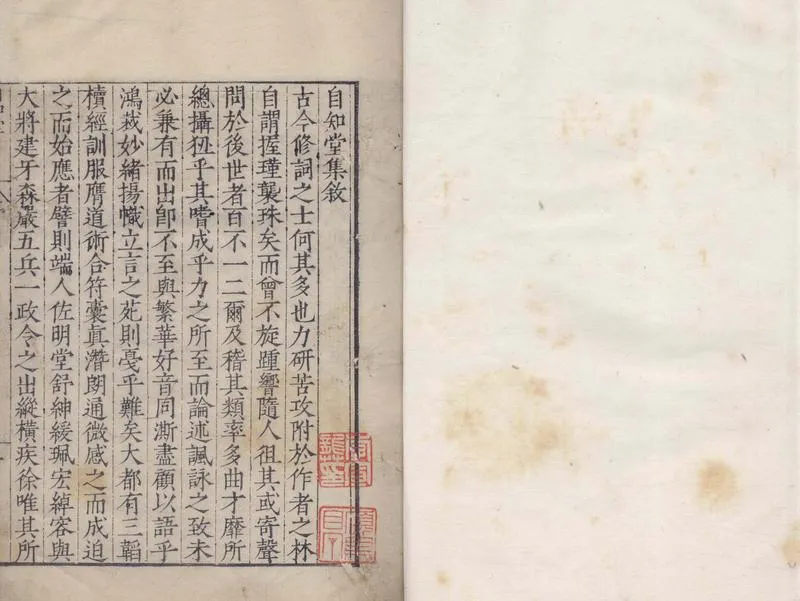 自知堂集敘
古今修詞之士何其多也力研苦攻附於作者之林
自謂握瑾襲珠矣而曾不旋踵響隨人徂其或寄聲
問於後世者百不一二爾及稽其類率多曲才靡所
總攝狃乎其嗜成乎力之所至而論述諷詠之致未
必兼有而出卽不至與繁華好音同澌盡顧以語乎
鴻裁妙緒揚幟立言之苑則戞乎難矣大都有三韜
櫝經訓服膺道術合符橐真濳朗通微感之而成迫
之而始應者譬則端人佐明堂舒紳緩珮宏綽容與
大將建牙森嚴五兵一政令之出縱橫疾徐唯其所